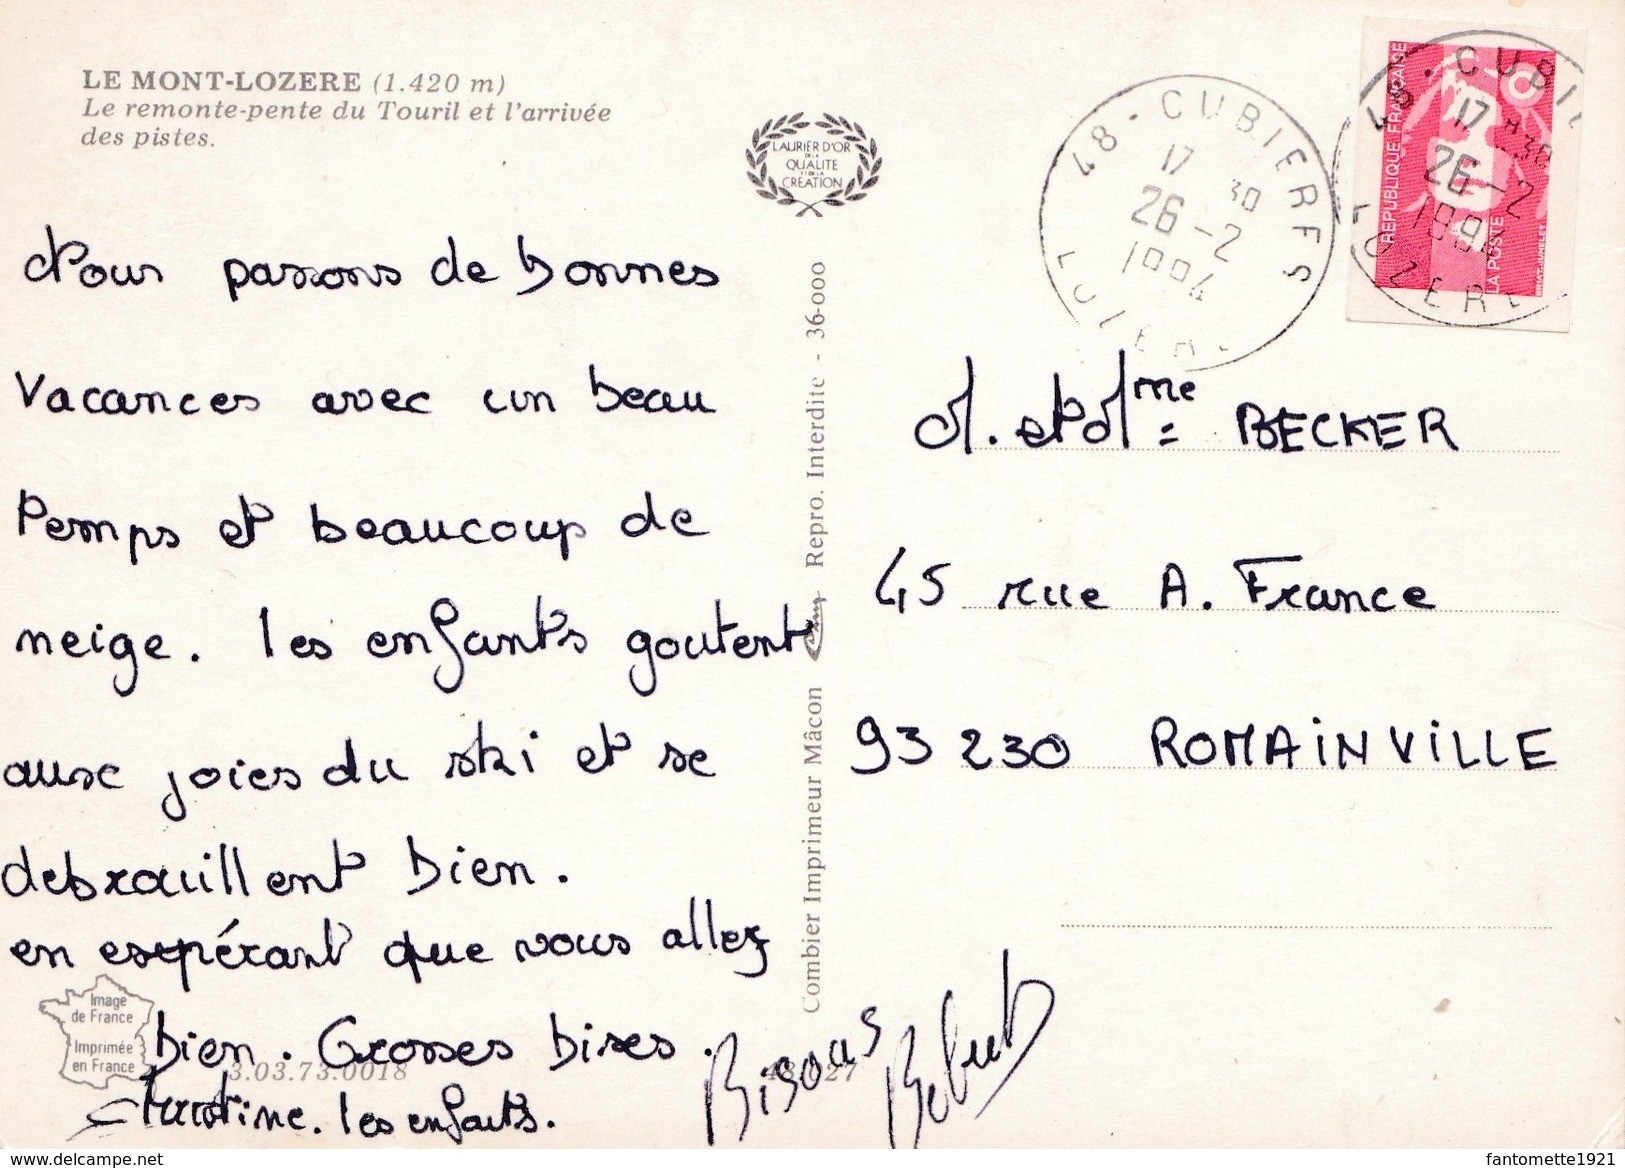 LE MONT-LOZERE (1.420 m)
Le remonte-pente du Touril et l'arrivée
des pistes.
LAURIER D'OR
DE LA
QUALITE
ET DE LA
CREATION
48 - CUBIERES
17 30
26 - 2
1994
LOZER
48 - CUBI
17 H 30
26 - 2
1994
LOZERE
REPUBLIQUE FRANÇAISE
LA POSTE
Nous passons de bonnes
vacances avec un beau
temps et beaucoup de
neige. les enfants goutent
aux joies du ski et se
debrouillent bien.
en espérant que vous allez
bien. Grosses bises.
les enfants.
Bisous
M. et Mme = BECKER
45 rue A. France
93 230 ROMAINVILLE
Combier Imprimeur Mâcon Repro. Interdite - 36-000
Image
de France
Imprimée
en France
3.03.73.0018
delcampe.net
fantomette1921